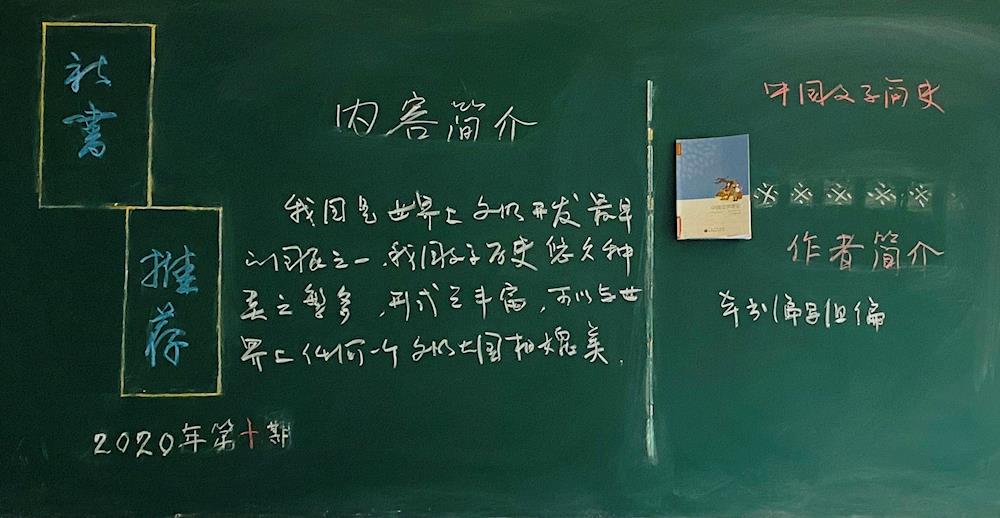 新
書
推
荐
2020年第十期
内容简介
我国是世界上文明开发最早
的国家之一,我国文字历史悠久种
类之繁多,形式之丰富,可以与世
界上任何一个文明大国相媲美.
中国文字间史
※※※※※
作者简介
本书编写组编